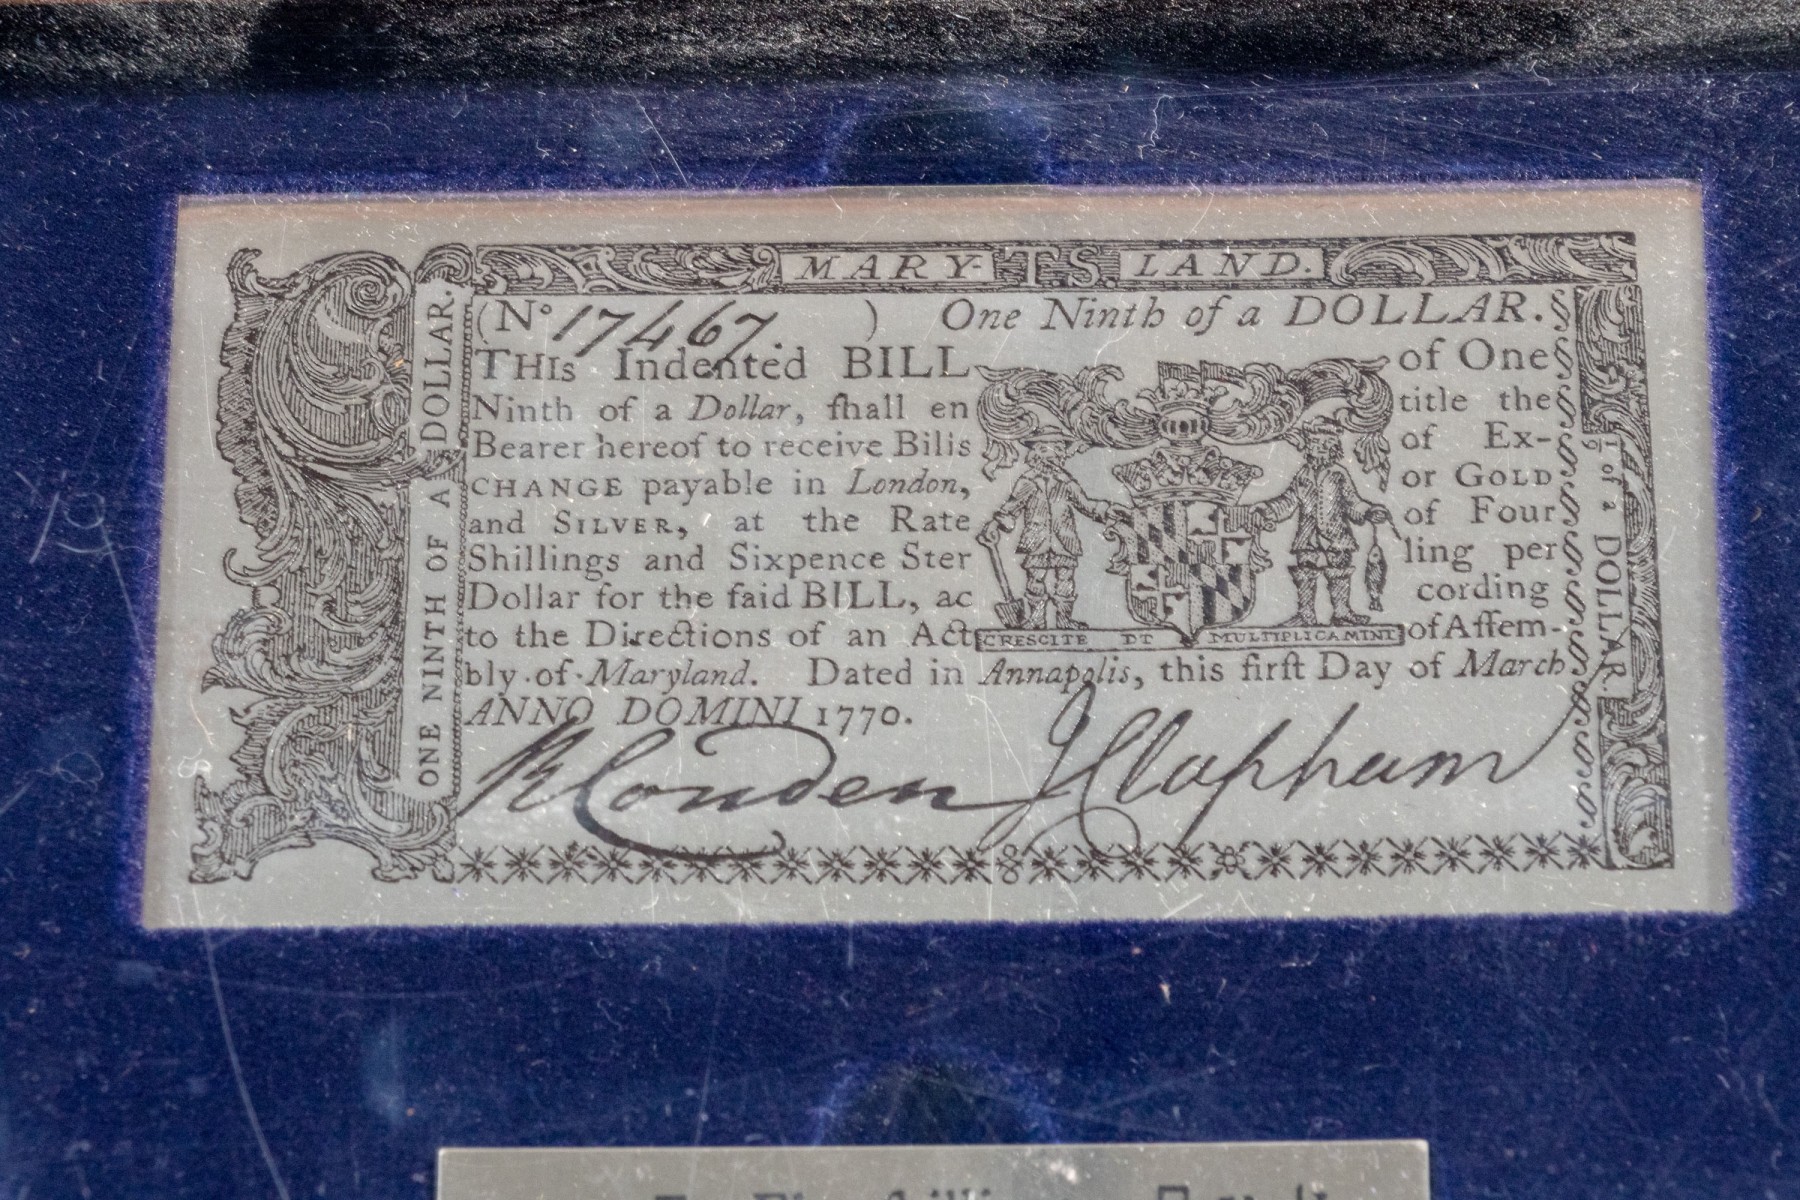 MARY- T.S. LAND.
(No. 17467. ) One Ninth of a DOLLAR.
THIS Indented BILL of One
Ninth of a Dollar, ſhall en title the
Bearer hereof to receive Bills of Ex-
CHANGE payable in London, or GOLD
and SILVER, at the Rate of Four
Shillings and Sixpence Ster ling per
Dollar for the ſaid BILL, ac cording
to the Directions of an Act of Aſſem-
bly of Maryland. Dated in Annapolis, this firſt Day of March
ANNO DOMINI 1770.
CRESCITE ET MULTIPLICAMINI
R Couden J Clapham
ONE NINTH OF A DOLLAR.
1/9 of a DOLLAR.